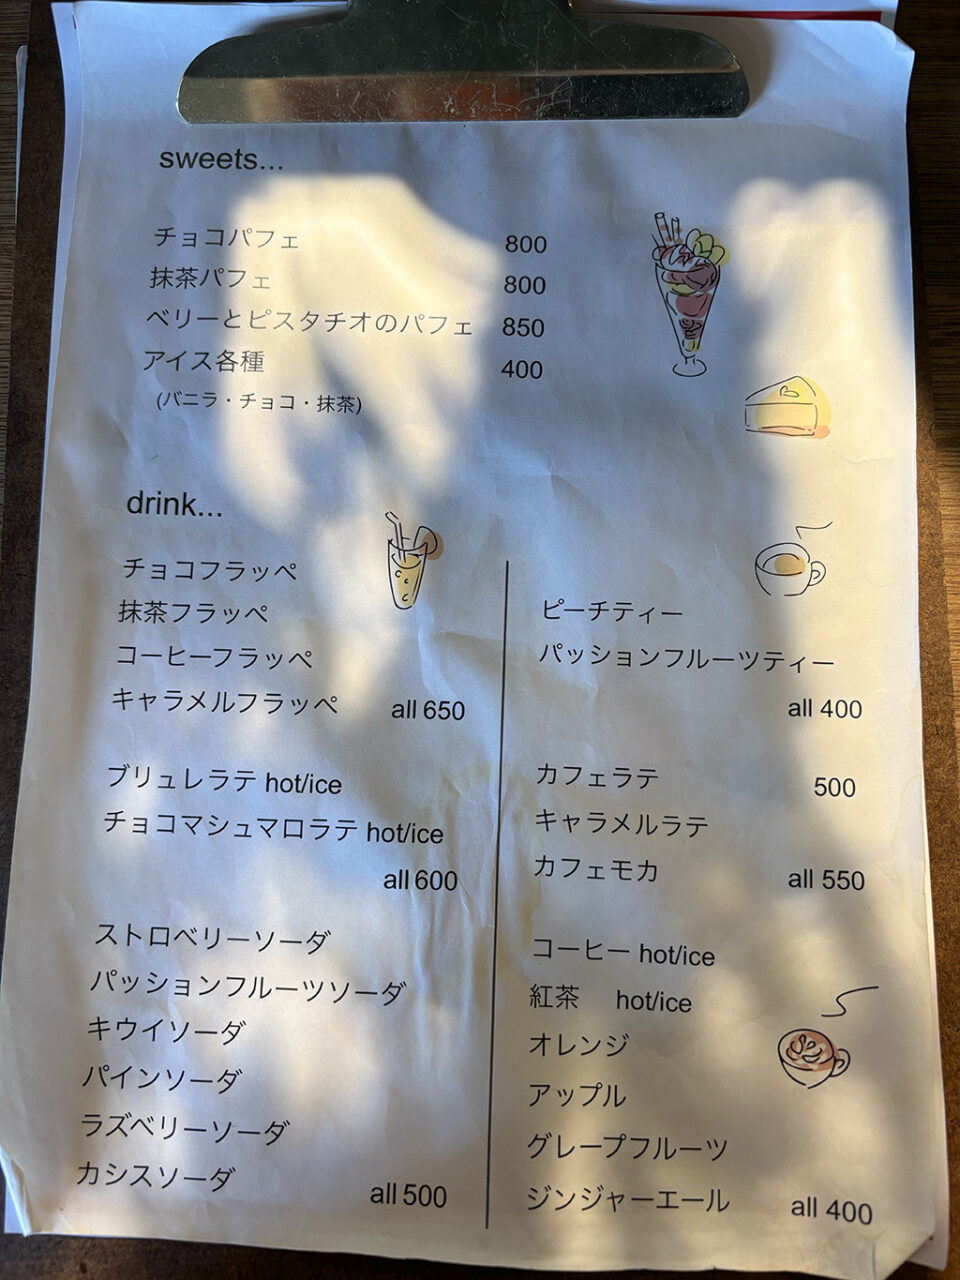 sweets...
チョコパフェ 800
抹茶パフェ 800
ベリーとピスタチオのパフェ 850
アイス各種 400
(バニラ・チョコ・抹茶)
drink...
チョコフラッペ
抹茶フラッペ
コーヒーフラッペ
キャラメルフラッペ all 650
ブリュレラテ hot/ice
チョコマシュマロラテ hot/ice
all 600
ストロベリーソーダ
パッションフルーツソーダ
キウイソーダ
パインソーダ
ラズベリーソーダ
カシスソーダ all 500
ピーチティー
パッションフルーツティー
all 400
カフェラテ 500
キャラメルラテ
カフェモカ all 550
コーヒー hot/ice
紅茶 hot/ice
オレンジ
アップル
グレープフルーツ
ジンジャーエール all 400